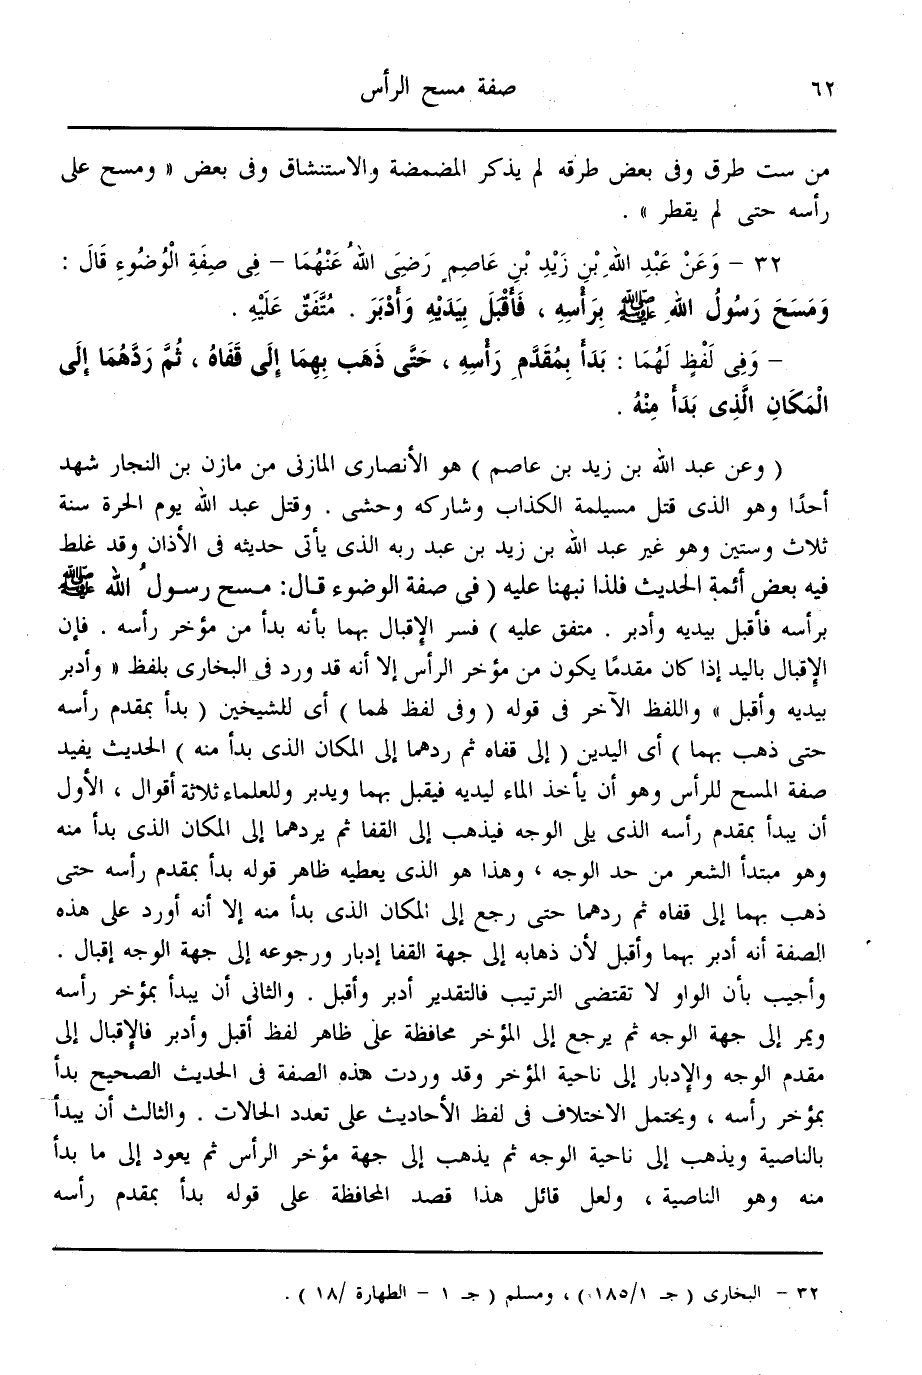 ٦٢
صفة مسح الرأس
من ست طرق وفى بعض طرقه لم يذكر المضمضة والاستنشاق وفى بعض « ومسح على
رأسه حتى لم يقطر » .
٣٢ – وَعَنْ عَبْدِ اللهِ بْنِ زَيْدِ بْنِ عَاصِمٍ رَضِىَ اللهُ عَنْهُمَا – فِى صِفَةِ الْوُضُوءِ قَالَ :
وَمَسَحَ رَسُولُ اللهِ ﷺ بِرَأْسِهِ ، فَأَقْبَلَ بِيَدَيْهِ وَأَدْبَرَ . مُتَّفَقٌ عَلَيْهِ .
– وَفِى لَفْظٍ لَهُمَا : بَدَأَ بِمُقَدَّمِ رَأْسِهِ ، حَتَّى ذَهَبَ بِهِمَا إِلَى قَفَاهُ ، ثُمَّ رَدَّهُمَا إِلَى
الْمَكَانِ الَّذِى بَدَأَ مِنْهُ .
( وعن عبد الله بن زيد بن عاصم ) هو الأنصارى المازنى من مازن بن النجار شهد
أحدًا وهو الذى قتل مسيلمة الكذاب وشاركه وحشى . وقتل عبد الله يوم الحرة سنة
ثلاث وستين وهو غير عبد الله بن زيد بن عبد ربه الذى يأتى حديثه فى الأذان وقد غلط
فيه بعض أئمة الحديث فلذا نبهنا عليه ( فى صفة الوضوء قال: مسح رسولُ الله ﷺ
برأسه فأقبل بيديه وأدبر . متفق عليه ) فسر الإقبال بهما بأنه بدأ من مؤخر رأسه . فإن
الإقبال باليد إذا كان مقدمًا يكون من مؤخر الرأس إلا أنه قد ورد فى البخارى بلفظ « وأدبر
بيديه وأقبل » واللفظ الآخر فى قوله ( وفى لفظ لهما ) أى للشيخين ( بدأ بمقدم رأسه
حتى ذهب بهما ) أى اليدين ( إلى قفاه ثم ردهما إلى المكان الذى بدأ منه ) الحديث يفيد
صفة المسح للرأس وهو أن يأخذ الماء ليديه فيقبل بهما ويدبر وللعلماء ثلاثة أقوال ، الأول
أن يبدأ بمقدم رأسه الذى يلى الوجه فيذهب إلى القفا ثم يردهما إلى المكان الذى بدأ منه
وهو مبتدأ الشعر من حد الوجه ، وهذا هو الذى يعطيه ظاهر قوله بدأ بمقدم رأسه حتى
ذهب بهما إلى قفاه ثم ردهما حتى رجع إلى المكان الذى بدأ منه إلا أنه أورد على هذه
الصفة أنه أدبر بهما وأقبل لأن ذهابه إلى جهة القفا إدبار ورجوعه إلى جهة الوجه إقبال .
وأجيب بأن الواو لا تقتضى الترتيب فالتقدير أدبر وأقبل . والثانى أن يبدأ بمؤخر رأسه
ويمر إلى جهة الوجه ثم يرجع إلى المؤخر محافظة على ظاهر لفظ أقبل وأدبر فالإقبال إلى
مقدم الوجه والإدبار إلى ناحية المؤخر وقد وردت هذه الصفة فى الحديث الصحيح بدأ
بمؤخر رأسه ، ويحتمل الاختلاف فى لفظ الأحاديث على تعدد الحالات . والثالث أن يبدأ
بالناصية ويذهب إلى ناحية الوجه ثم يذهب إلى جهة مؤخر الرأس ثم يعود إلى ما بدأ
منه وهو الناصية ، ولعل قائل هذا قصد المحافظة على قوله بدأ بمقدم رأسه
٣٢ – البخارى ( جـ ١٨٥/١) ، ومسلم ( جـ ١ – الطهارة /١٨ ) .